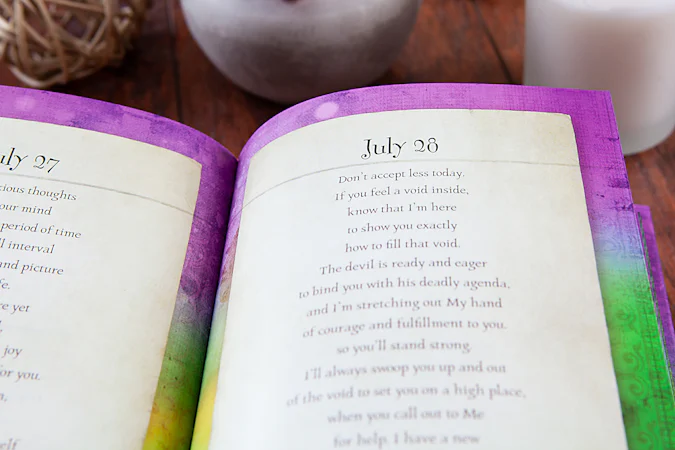 uly 27
ious thoughts
our mind
period of time
l interval
and picture
fe.
re yet
joy
for you.
self
July 28
Don't accept less today.
If you feel a void inside,
know that I'm here
to show you exactly
how to fill that void.
The devil is ready and eager
to bind you with his deadly agenda,
and I'm stretching out My hand
of courage and fulfillment to you.
so you'll stand strong.
I'll always swoop you up and out
of the void to set you on a high place,
when you call out to Me
for help. I have a new